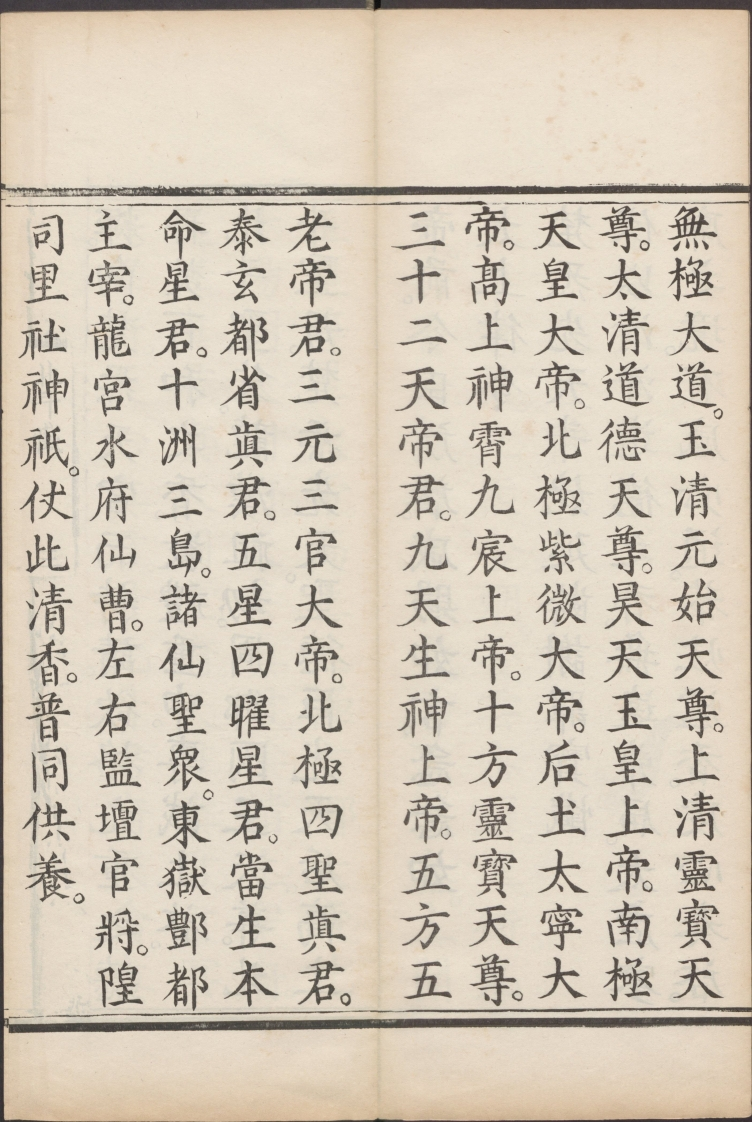 無極大道。玉清元始天尊。上清靈寳天
尊。太清道德天尊。昊天玉皇上帝。南極
天皇大帝。北極紫微大帝。后土太寧大
帝。高上神霄九宸上帝。十方靈寳天尊。
三十二天帝君。九天生神上帝。五方五
老帝君。三元三官大帝。北極四聖眞君。
泰玄都省眞君。五星四曜星君。當生本
命星君。十洲三島。諸仙聖衆。東嶽酆都
主宰。龍宮水府仙曹。左右監壇官將。隍
司里社神祇。仗此清香。普同供養。